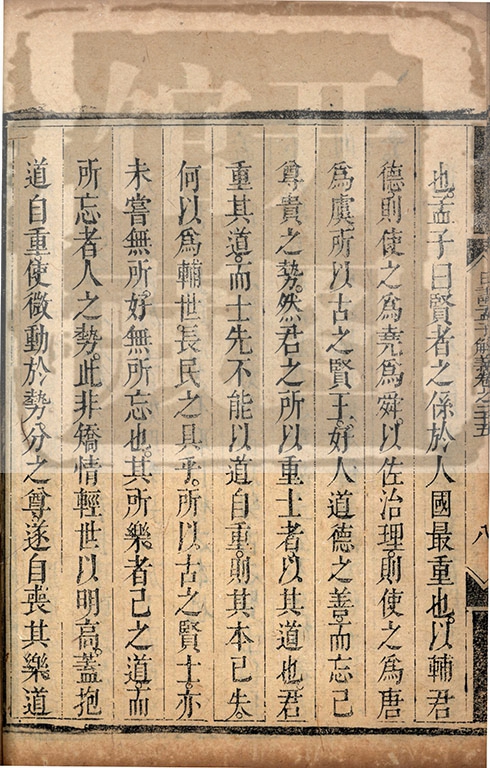 也。孟子曰賢者之係於人國最重也。以輔君
德則使之為堯為舜。以佐治理則使之為唐
為虞。所以古之賢王。好人道德之善。而忘己
尊貴之勢。然君之所以重士者以其道也。君
重其道。而士先不能以道自重。則其本已失。
何以為輔世長民之具乎。所以古之賢士。亦
未嘗無所好。無所忘也。其所樂者己之道。而
所忘者人之勢。此非矯情輕世以明高。蓋抱
道自重。使微動於勢分之尊。遂自喪其樂道
日講四書解義卷之二十五
八